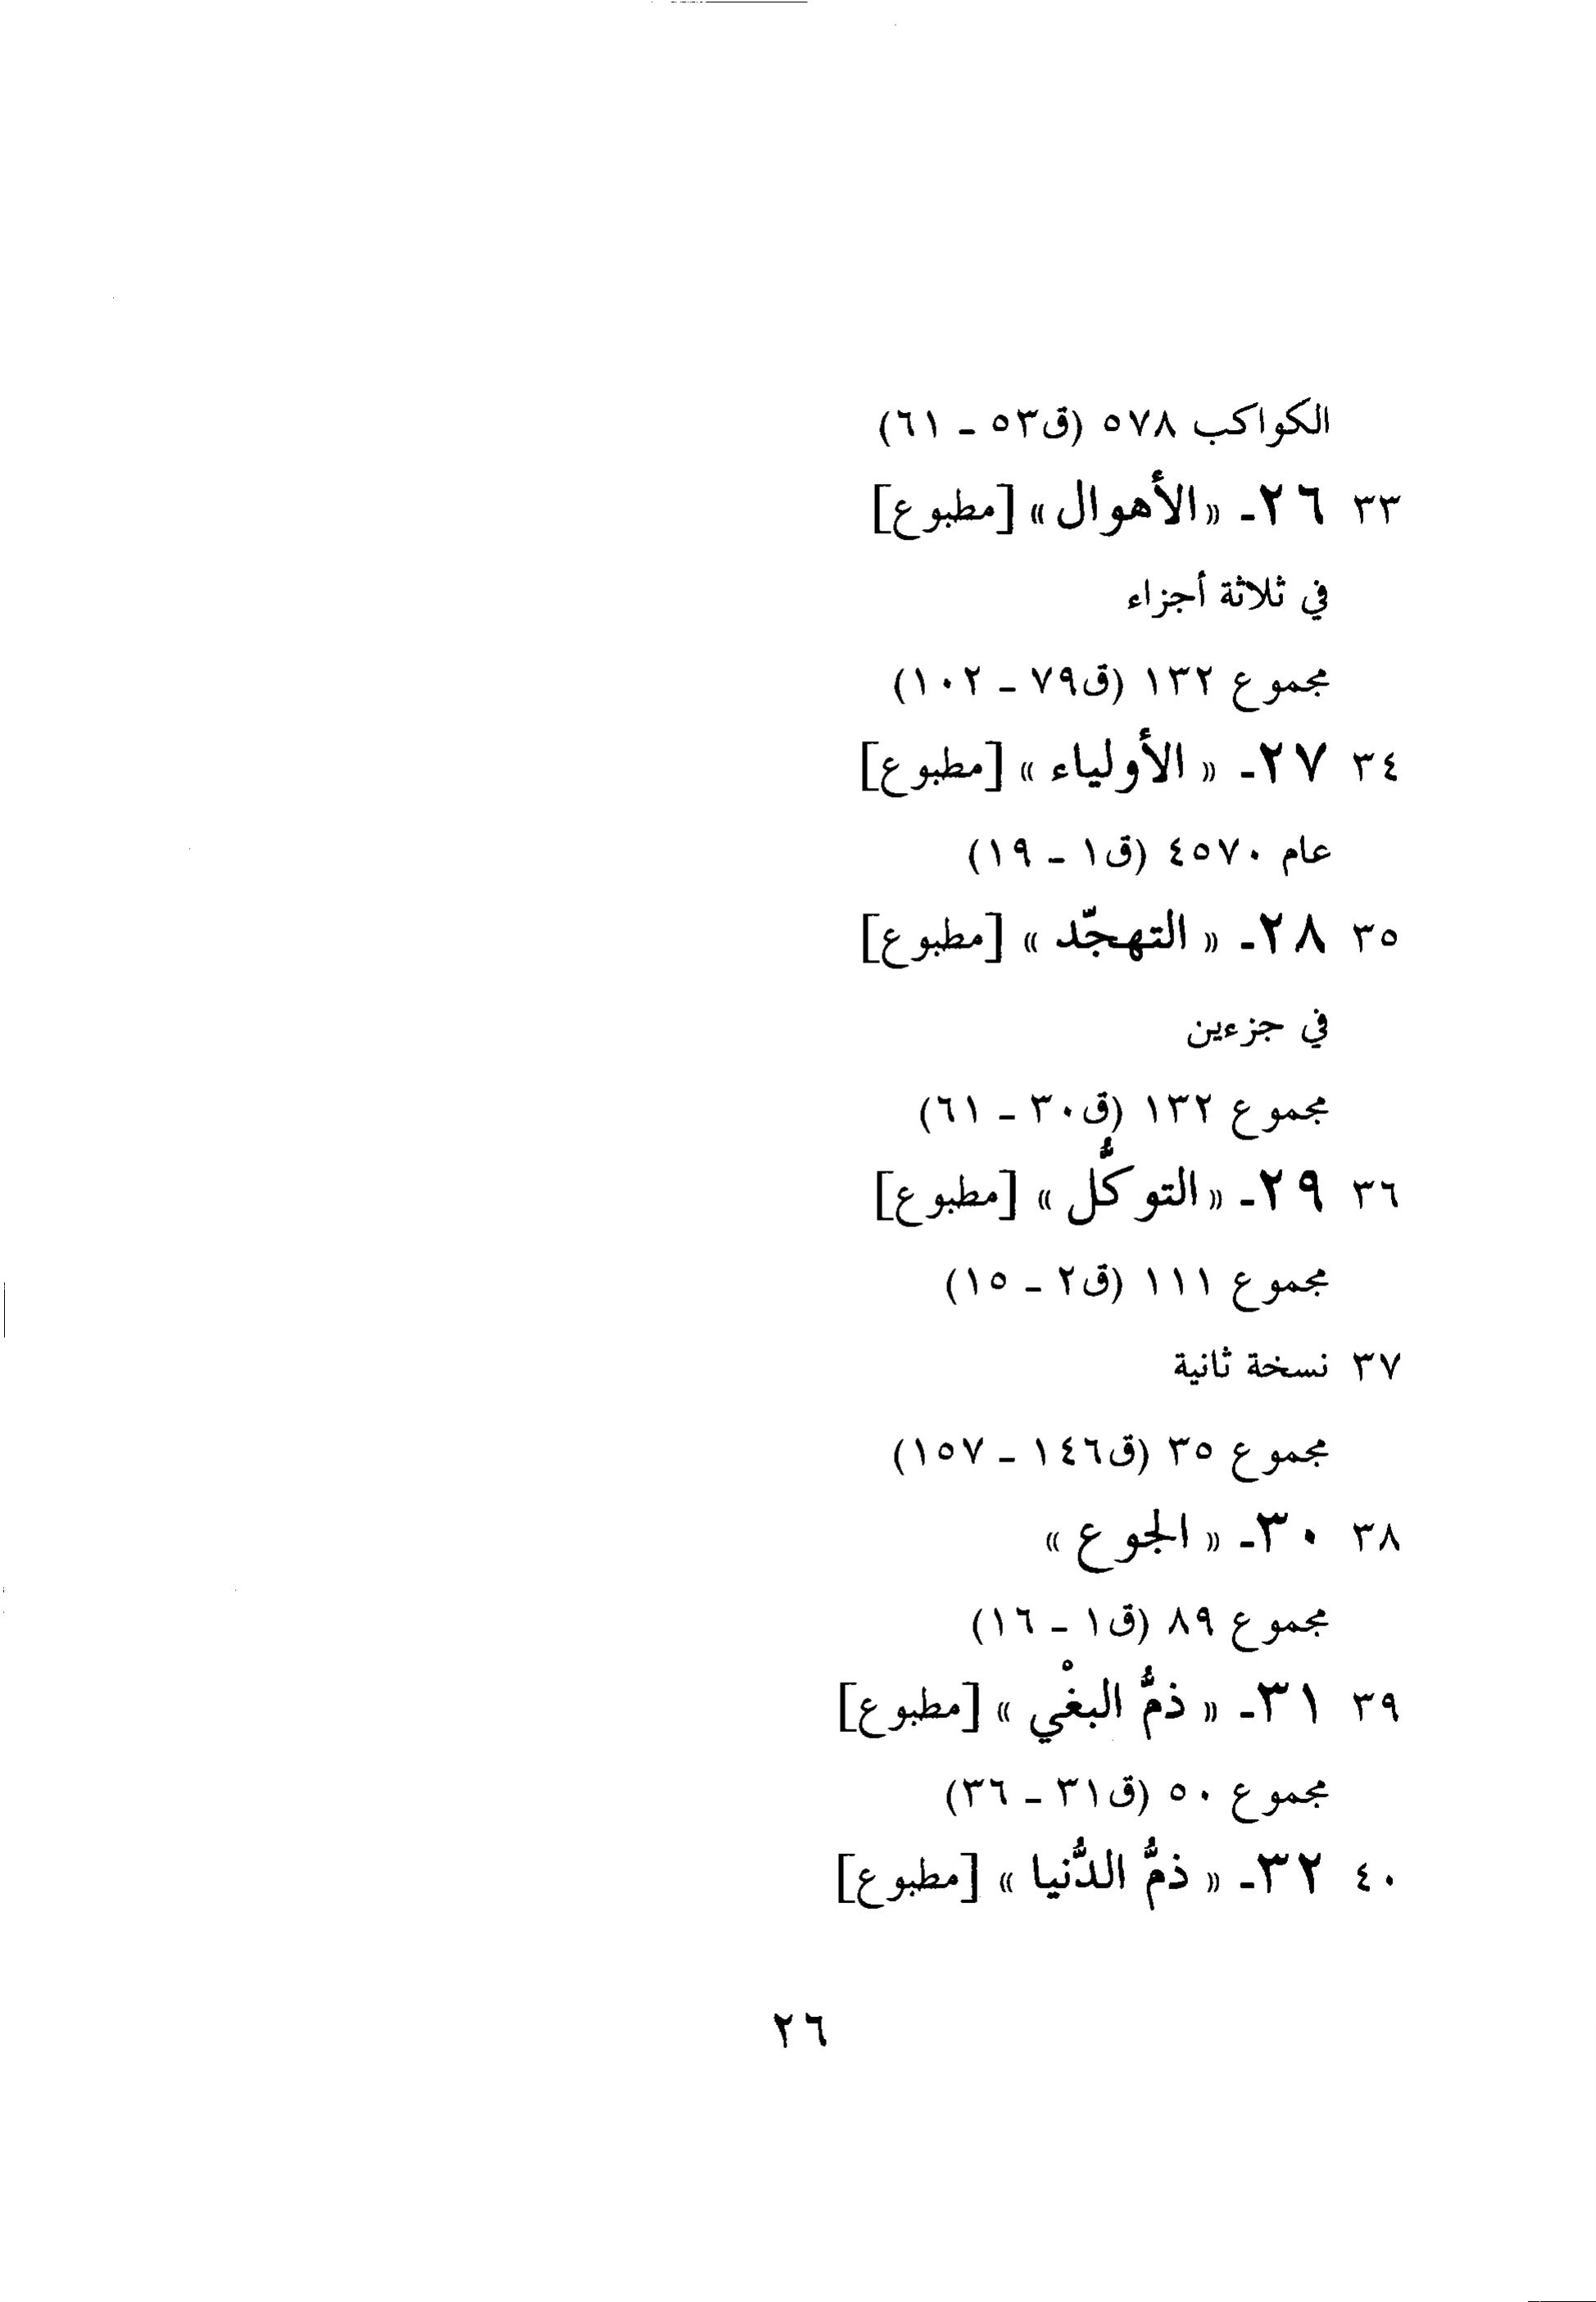 الكواكب ٥٧٨ (ق٥٣ - ٦١)
٣٣ ٢٦- «الأهوال» [مطبوع]
في ثلاثة أجزاء
مجموع ١٣٢ (ق٧٩ - ١٠٢)
٣٤ ٢٧- «الأولياء» [مطبوع]
عام ٤٥٧٠ (ق١ - ١٩)
٣٥ ٢٨- «التهجّد» [مطبوع]
في جزءين
مجموع ١٣٢ (ق٣٠ - ٦١)
٣٦ ٢٩- «التوكُّل» [مطبوع]
مجموع ١١١ (ق٢ - ١٥)
٣٧ نسخة ثانية
مجموع ٣٥ (ق١٤٦ - ١٥٧)
٣٨ ٣٠- «الجوع»
مجموع ٨٩ (ق١ - ١٦)
٣٩ ٣١- «ذمُّ البغْي» [مطبوع]
مجموع ٥٠ (ق٣١ - ٣٦)
٤٠ ٣٢- «ذمُّ الدُّنيا» [مطبوع]
٢٦